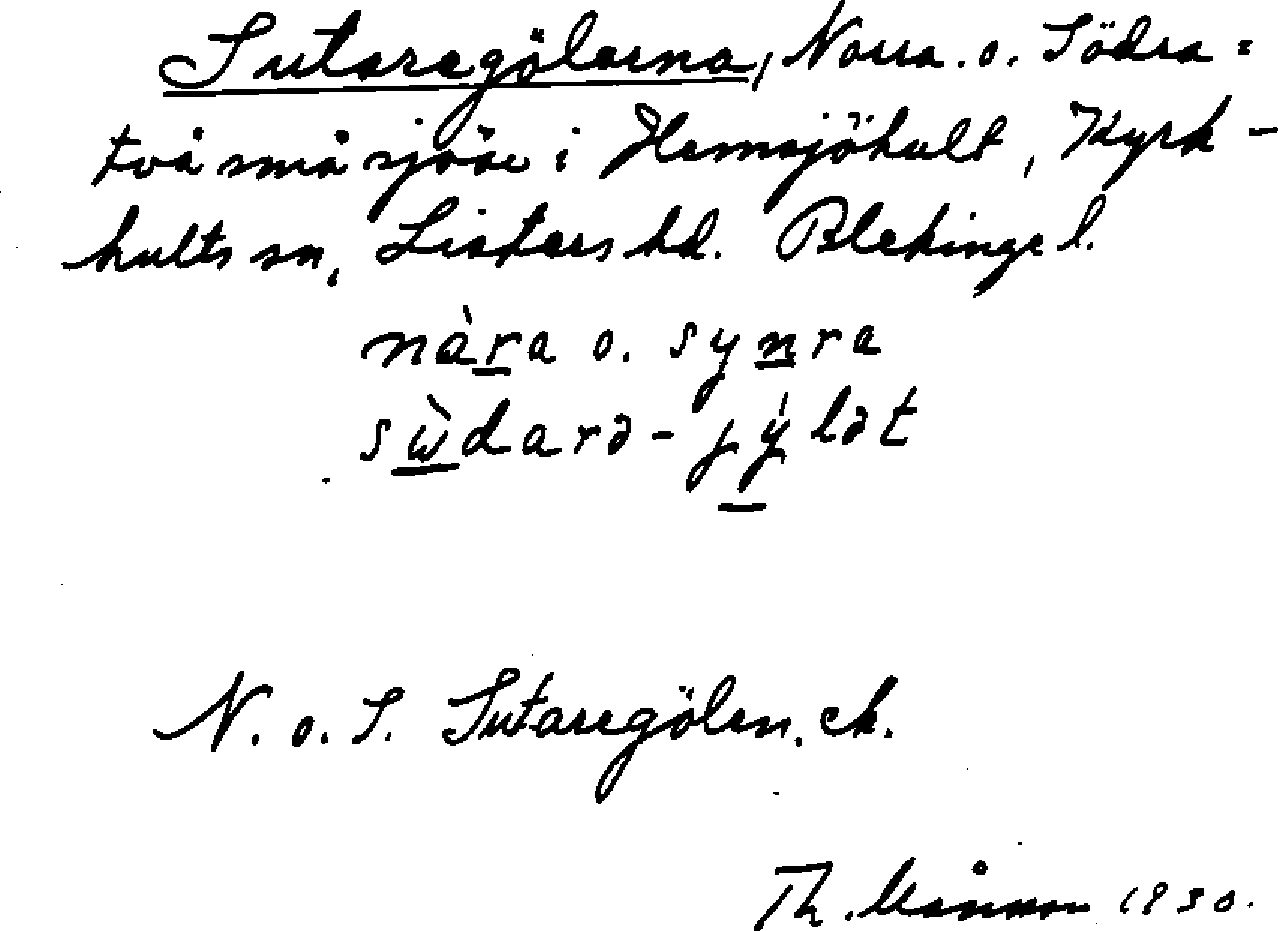 Sutaregölarna, Norra. o. Södra =
två små sjöar i Hemsjöhult, Kyrk-
hults sn, Listers hd. Blekinge l.
nàra o. synra
sùdarə-jýlət
N. o. S. Sutaregölen. ek.
Th. Månsson 1930.